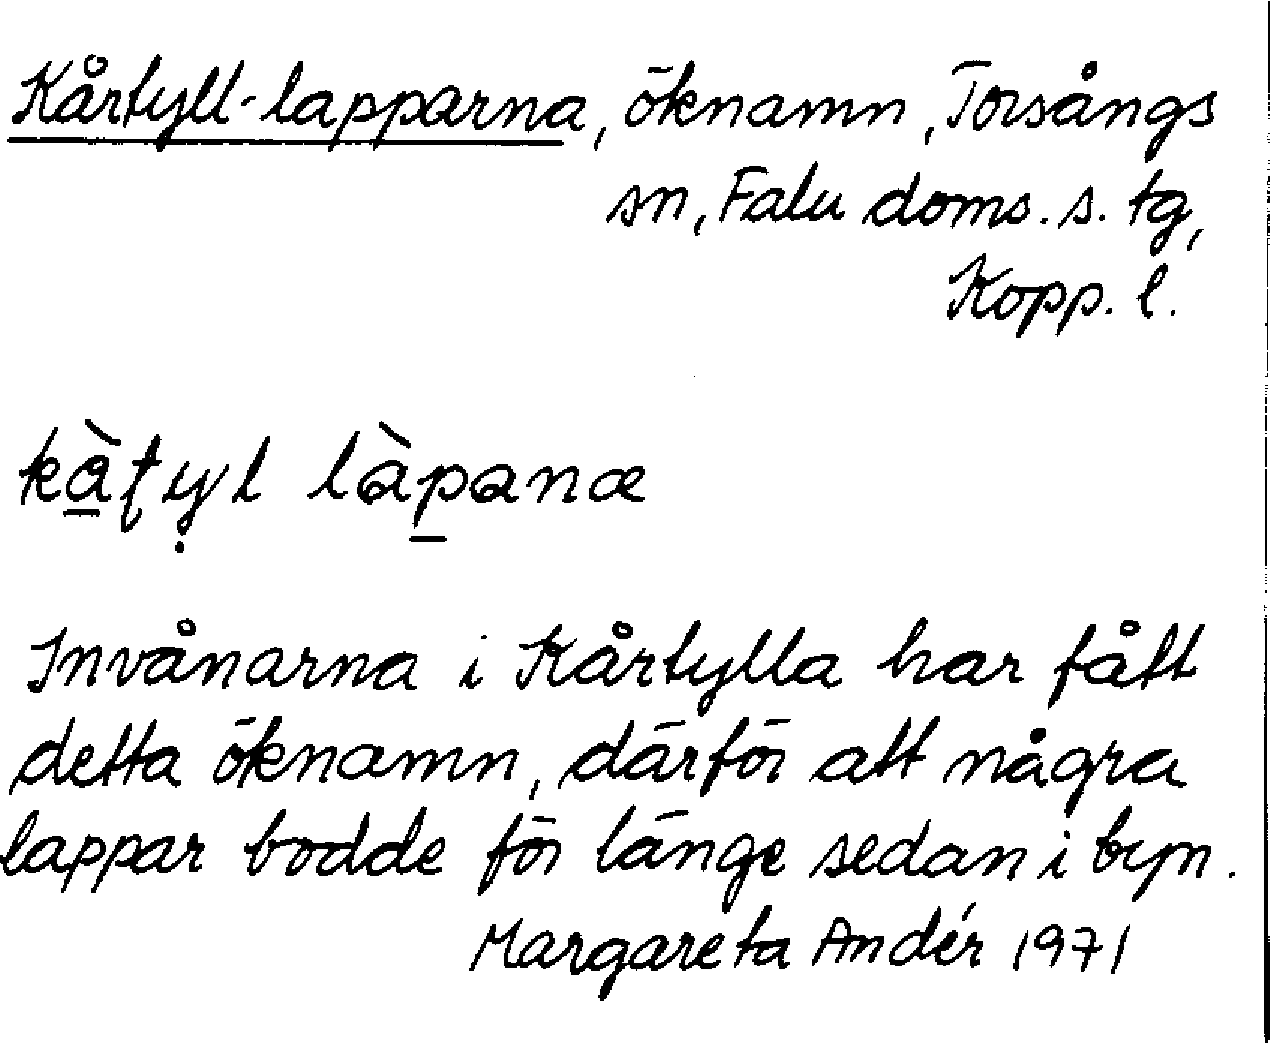 Kårtyll-lapparna, öknamn, Torsångs
sn, Falu doms. s. tg,
Kopp. l.
Invånarna i Kårtylla har fått
detta öknamn, därför att några
lappar bodde för länge sedan i byn.
Margareta Andér 1971